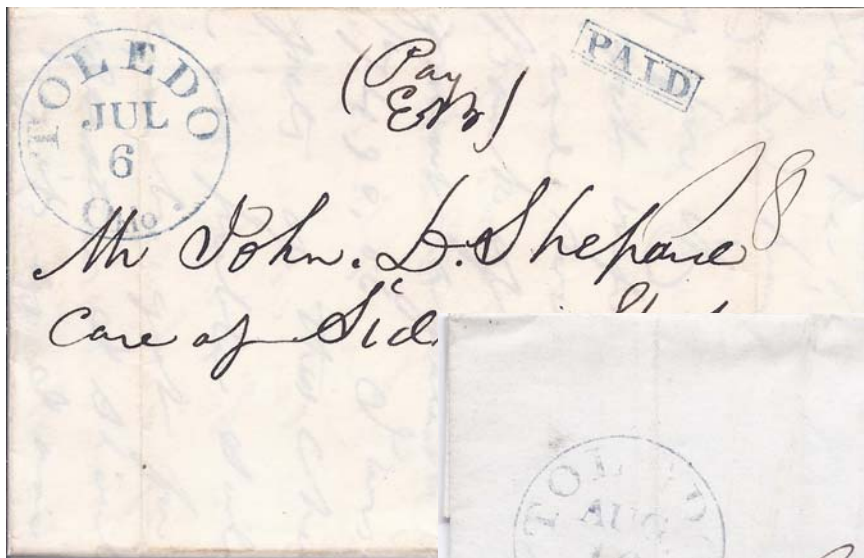 TOLEDO
JUL
6
Ohio
(Pay
PAID
8
Mr John. D. Shepard
Care of Sid
TOL D
AUG